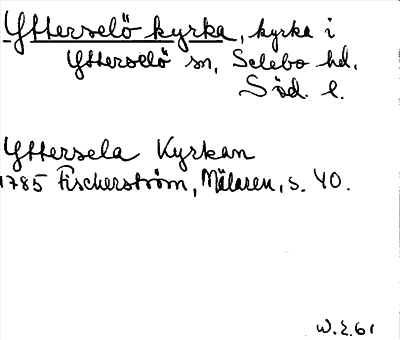 Ytterselö kyrka, kyrka i
Ytterselö sn, Selebo hd.
Söd. l.
Yttersela Kyrkan
1785 Fischerström, Mälaren, s. 40.
W.E.61